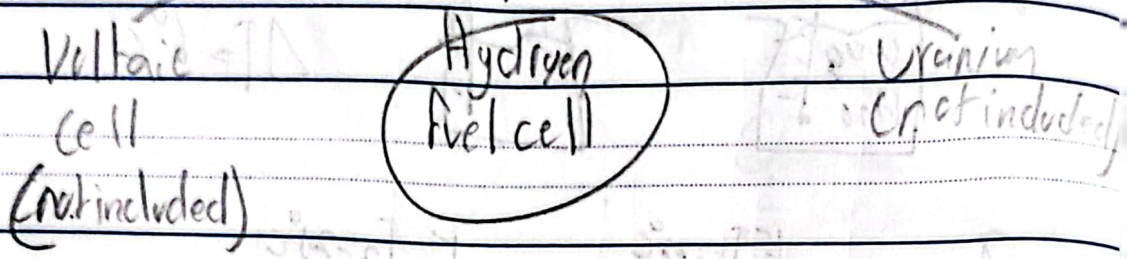 Voltaic
cell
(not included)
Hydrogen
fuel cell
Uranium
(not included)